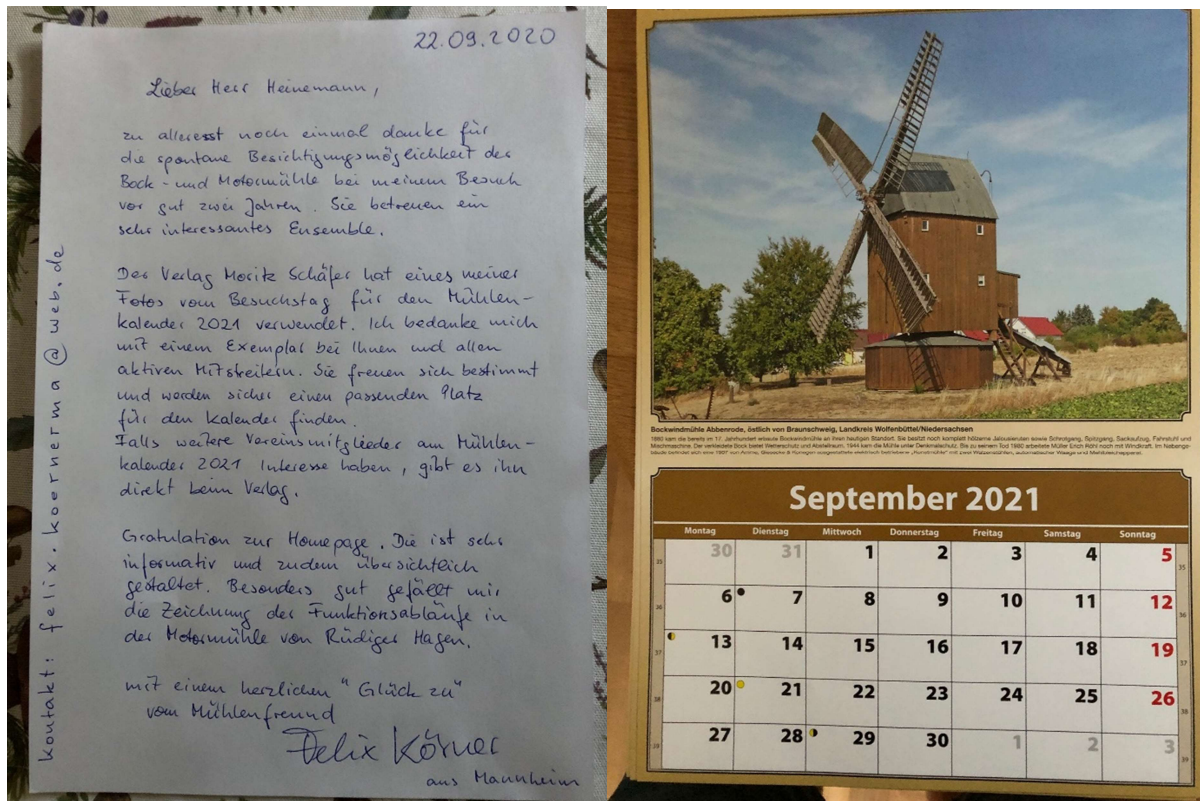 22.09.2020
Lieber Herr Heinemann,
zu allererst noch einmal danke für
die spontane Besichtigungsmöglichkeit der
Bock- und Motormühle bei meinem Besuch
vor gut zwei Jahren. Sie betreuen ein
sehr interessantes Ensemble.
Der Verlag Moritz Schäfer hat eines meiner
Fotos vom Besuchstag für den Mühlen-
kalender 2021 verwendet. Ich bedanke mich
mit einem Exemplar bei Ihnen und allen
aktiven Mitstreitern. Sie freuen sich bestimmt
und werden sicher einen passenden Platz
für den Kalender finden.
Falls weitere Vereinsmitglieder am Mühlen-
kalender 2021 Interesse haben, gibt es ihn
direkt beim Verlag.
Gratulation zur Homepage. Die ist sehr
informativ und zudem übersichtlich
gestaltet. Besonders gut gefällt mir
die Zeichnung der Funktionsabläufe in
der Motormühle von Rüdiger Hagen.
mit einem herzlichen "Glück zu"
vom Mühlenfreund
Felix Körner
aus Mannheim
Kontakt: felix.koernerma@web.de
Bockwindmühle Abbenrode, östlich von Braunschweig, Landkreis Wolfenbüttel/Niedersachsen
1880 kam die bereits im 17. Jahrhundert erbaute Bockwindmühle an ihren heutigen Standort. Sie besitzt noch komplett hölzerne Jalousieruten sowie Schrotgang, Spitzgang, Sackaufzug, Fahrstuhl und
Mischmaschine. Der verkleidete Bock bietet Wetterschutz und Abstellraum. 1944 kam die Mühle unter Denkmalschutz. Bis zu seinem Tod 1980 arbeitete Müller Erich Röhl noch mit Windkraft. Im Nebenge-
bäude befindet sich eine 1907 von ausgestattete elektrisch betriebene mit zwei Walzenstühlen, automatischer Waage und
September 2021
Montag Dienstag Mittwoch Donnerstag Freitag Samstag Sonntag
35 30 31 1 2 3 4 5 35
36 6 7 8 9 10 11 12 36
37 13 14 15 16 17 18 19 37
38 20 21 22 23 24 25 26 38
39 27 28 29 30 1 2 3 39